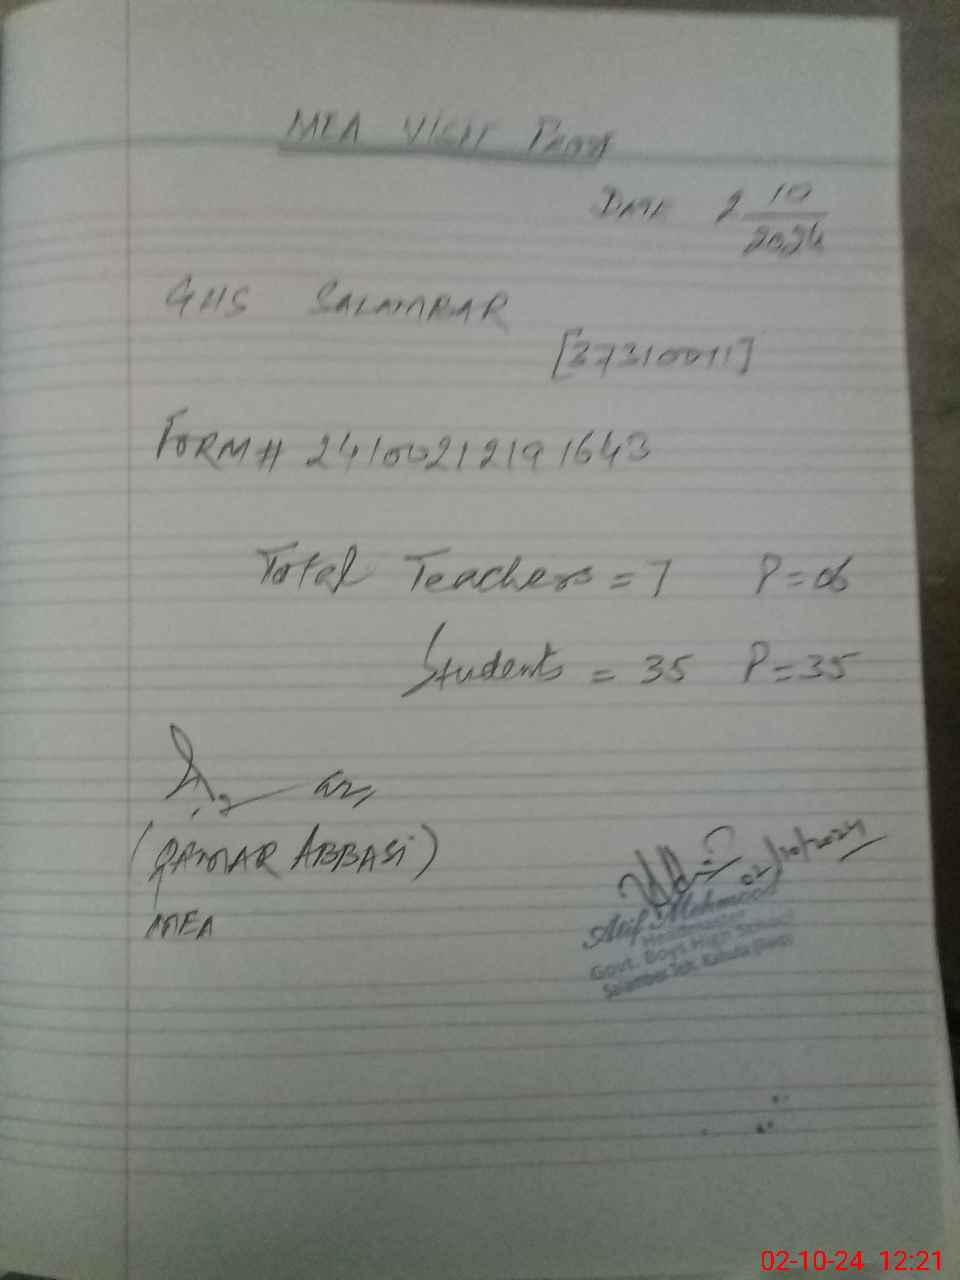 MEA VISIT PROOF
DATE 2 10/2024
GHS SALAMBAR
[37310011]
FORM# 24100212191643
Total Teachers = 7 P=06
Students = 35 P=35
(QAMAR ABBASI)
MEA
02/10/2024
Atif Mehmood
Headmaster
Govt. Boys High School
Salambar Teh. Kahuta (Rwp)
02-10-24 12:21